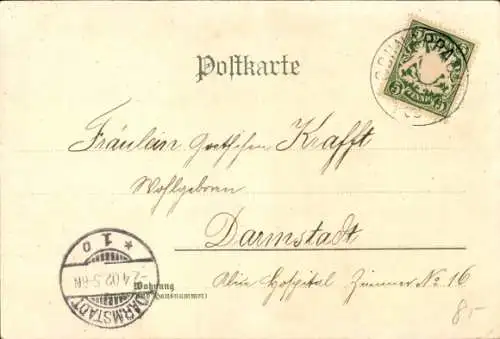 Postkarte
5 PFENNIG 5
Fräulein Gretchen Krafft
Wohlgeboren
Darmstadt
Wohnung
(und Hausnummer)
Alice Hospital Zimmer No 16
* 1 o
-2.4.02.5-6N
DARMSTADT
8,-